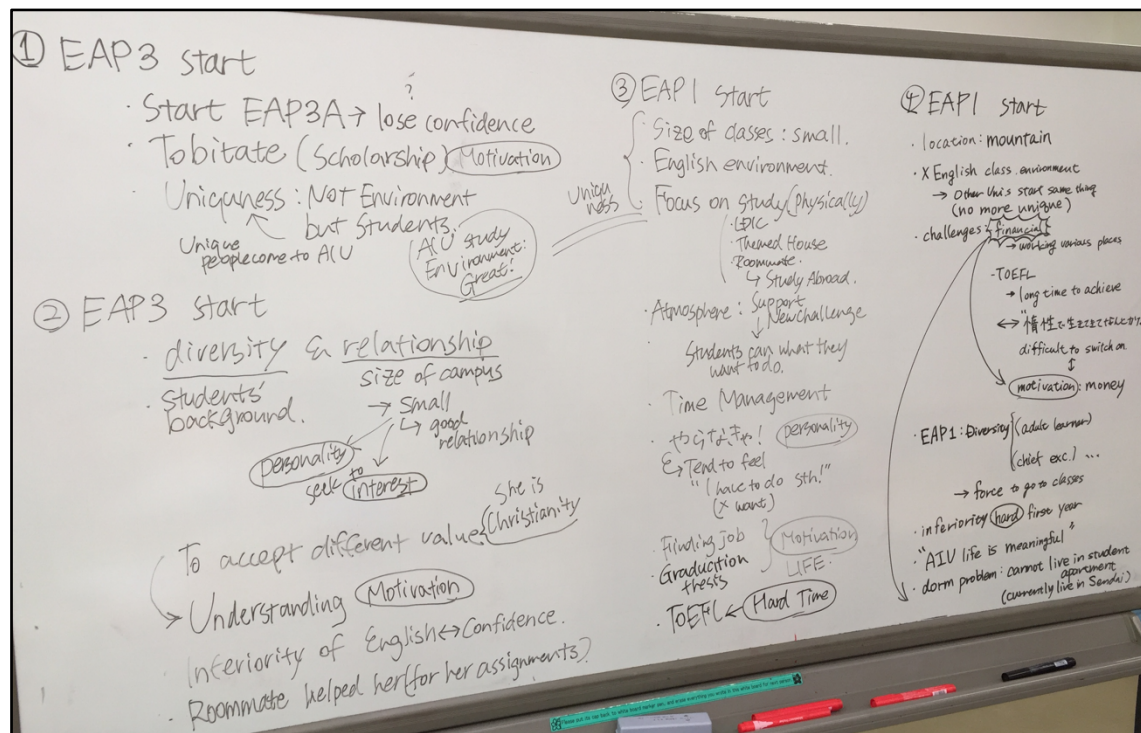 ① EAP3 start
?
· Start EAP3A → lose confidence
· Tobitate (Scholarship) Motivation
· Uniquness : Not Environment
but Students.
Unique
people come to AIU
AIU study
Environment:
Great!
② EAP3 start
· diversity & relationship
size of campus
· students'
background.
→ small
↳ good
relationship
personality
seek to
interest
To accept different value
She is
Christianity
→ Understanding Motivation
· Inferiority of English ↔ Confidence.
· Roommate helped her (for her assignments)
③ EAP1 start
Uniqu
ness
· Size of classes : small.
· English environment.
· Focus on study (physically)
· LDIC
· Themed House
· Roommate.
↳ Study Abroad.
· Atmosphere : Support
New challenge
Students can what they
want to do.
· Time Management
· やらなきゃ! personality
↳ Tend to feel
"I have to do sth!"
(× want)
· Finding job
· Graduction
thests
Motivation
LIFE.
· TOEFL ← Hard Time
④ EAP1 start
· location : mountain
· × English class. environment
→ Other Uni.s start same thing
(no more unique)
· challenges : financial
→ working various places
- TOEFL
→ long time to achieve
↔ "惰性で生きてきて
difficult to switch on.
↕
motivation : money
· EAP1 : Diversity (adult learner)
(chief exc.) ...
→ force to go to classes
· inferiority hard first year
· "AIU life is meaningful"
· dorm problem : cannot live in student
apartment
(currently live in Sendai)
Please put lid cap back to white board marker pen, and erase everything you wrote in this white board for next person.